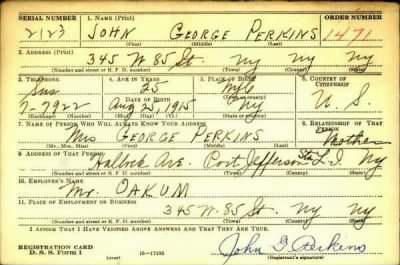 SERIAL NUMBER 1. NAME (Print) ORDER NUMBER
2123 JOHN GEORGE PERKINS 1471
(First) (Middle) (Last)
2. ADDRESS (Print)
345 W. 85 St. Ny Ny
(Number and street or R. F. D. number) (Town) (County) (State)
3. TELEPHONE 4. AGE IN YEARS 5. PLACE OF BIRTH 6. COUNTRY OF CITIZENSHIP
Sus 25 NYC
7-7922 DATE OF BIRTH Aug 25, 1915 Ny U. S.
(Exchange) (Number) (Mo.) (Day) (Yr.) (State or country)
7. NAME OF PERSON WHO WILL ALWAYS KNOW YOUR ADDRESS 8. RELATIONSHIP OF THAT PERSON
Mrs GEORGE PERKINS Mother
(Mr., Mrs., Miss) (First) (Middle) (Last)
9. ADDRESS OF THAT PERSON
Hallock Ave. Port Jefferson Sta L.I. Ny
(Number and street or R. F. D. number) (Town) (County) (State)
10. EMPLOYER'S NAME
Mr. OAKUM
11. PLACE OF EMPLOYMENT OR BUSINESS
345 W. 85 St. Ny Ny
(Number and street or R. F. D. number) (Town) (County) (State)
I AFFIRM THAT I HAVE VERIFIED ABOVE ANSWERS AND THAT THEY ARE TRUE.
REGISTRATION CARD
D. S. S. Form 1 (over) 16—17105 John G Perkins
(Registrant's signature)